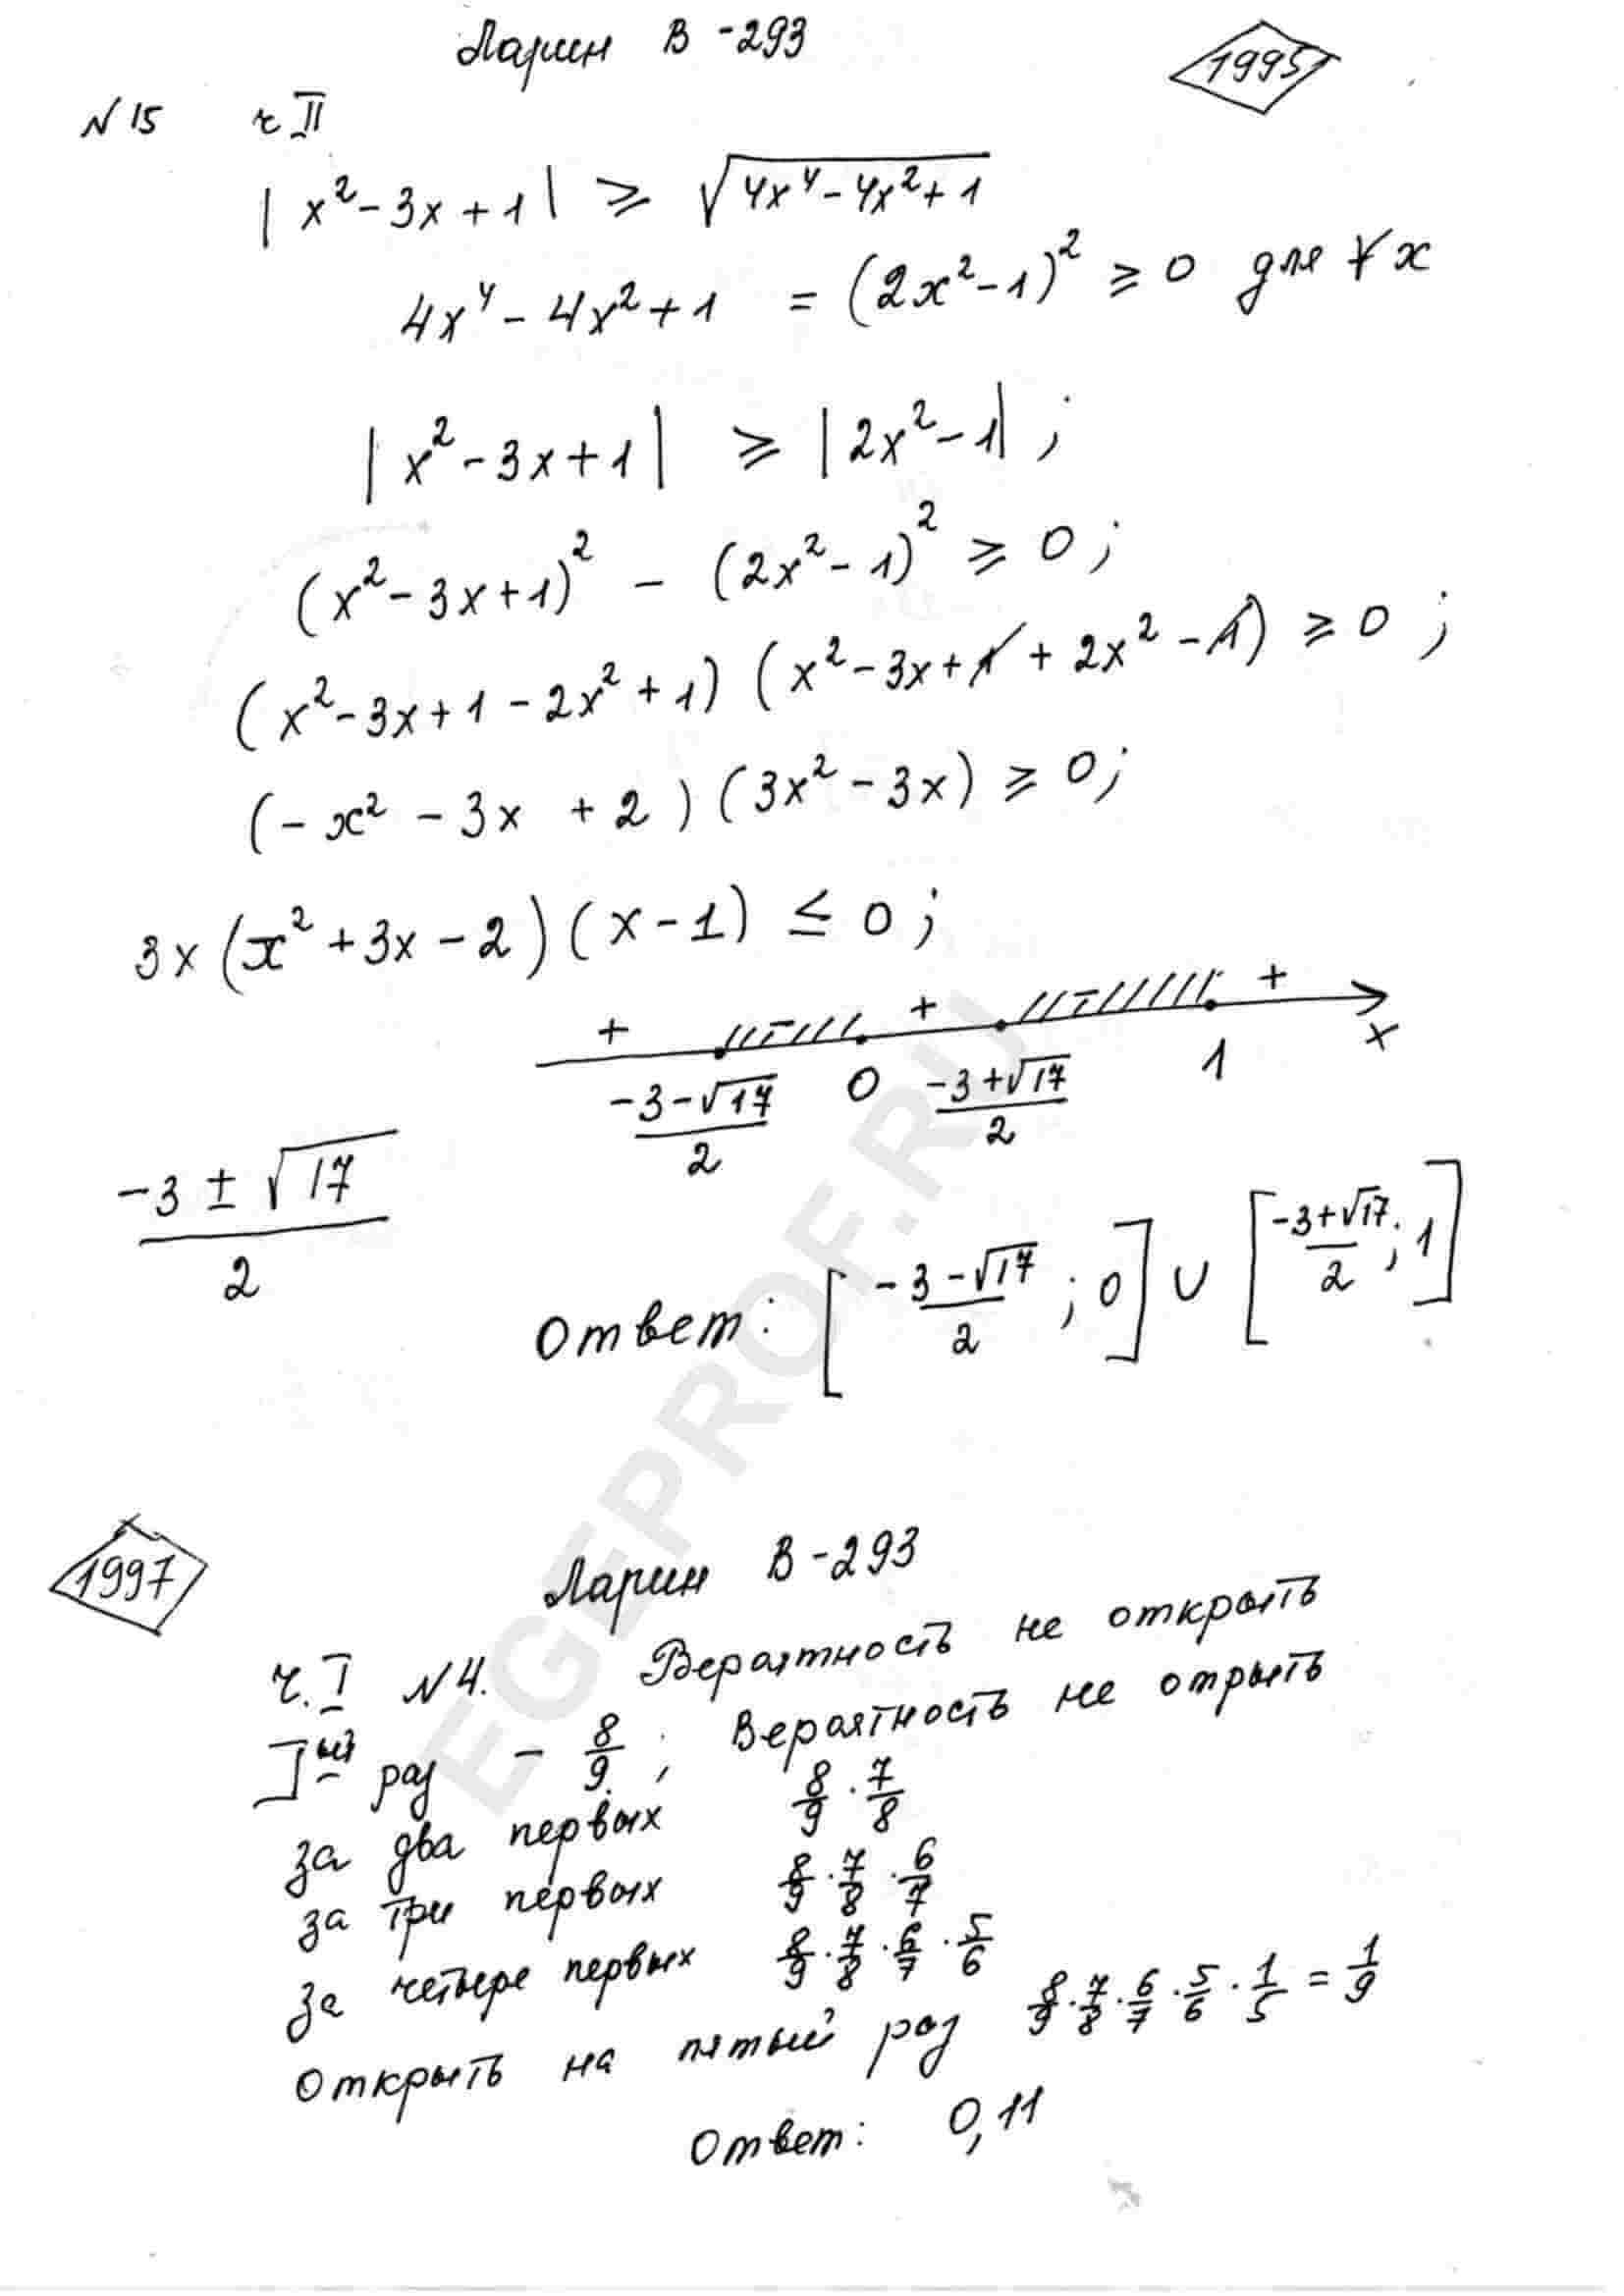 Ларин В-293
1995
№15 ч II
|x² - 3x + 1| ≥ √(4x⁴ - 4x² + 1)
4x⁴ - 4x² + 1 = (2x² - 1)² ≥ 0 для ∀x
|x² - 3x + 1| ≥ |2x² - 1| ;
(x² - 3x + 1)² - (2x² - 1)² ≥ 0 ;
(x² - 3x + 1 - 2x² + 1) (x² - 3x + 1 + 2x² - 1) ≥ 0 ;
(-x² - 3x + 2) (3x² - 3x) ≥ 0 ;
3x (x² + 3x - 2) (x - 1) ≤ 0 ;
+ - + - +
(-3 - √17)/2 0 (-3 + √17)/2 1 x
(-3 ± √17)/2
Ответ: [(-3 - √17)/2 ; 0] ∪ [(-3 + √17)/2 ; 1]
EGEPROF.RU
1997
Ларин В-293
Ч. I №4. Вероятность не открыть
I ый раз - 8/9 ; Вероятность не отрыть
за два первых 8/9 · 7/8
за три первых 8/9 · 7/8 · 6/7
за четыре первых 8/9 · 7/8 · 6/7 · 5/6
Открыть на пятый раз 8/9 · 7/8 · 6/7 · 5/6 · 1/5 = 1/9
Ответ: 0,11